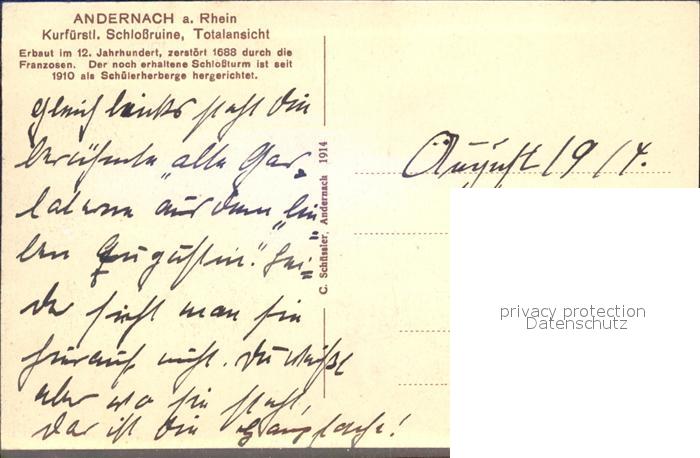 ANDERNACH a. Rhein
Kurfürstl. Schloßruine, Totalansicht
Erbaut im 12. Jahrhundert, zerstört 1688 durch die
Franzosen. Der noch erhaltene Schloßturm ist seit
1910 als Schülerherberge hergerichtet.
gleich links steht die
berühmte "alte Gas-
laterne aus dem "lie-
ben Augustin". Lei-
der sieht man sie
hierauf nicht. Du weißt
aber wo sie steht,
das ist die Hauptsache!
C. Schüssler, Andernach 1914
August 1914.
privacy protection
Datenschutz